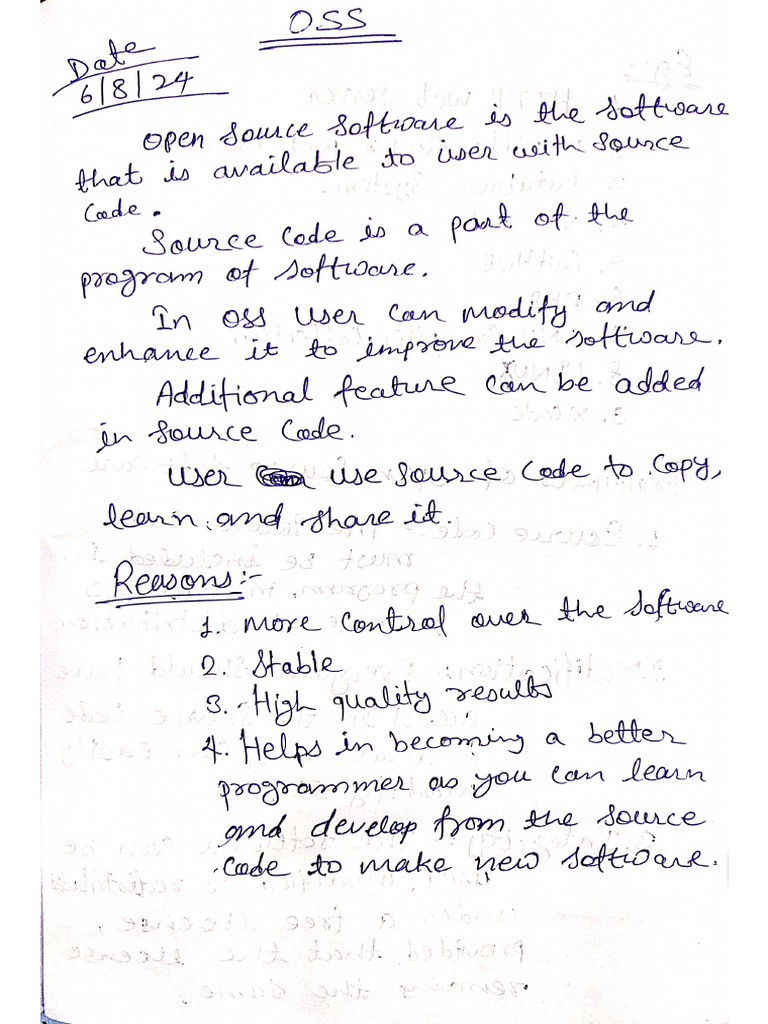 OSS
Date
6/8/24
Open Source Software is the Software
that is available to user with Source
Code.
Source Code is a part of the
program of software.
In OSS User can modify and
enhance it to improve the software.
Additional feature can be added
in Source Code.
User use source code to copy,
learn and share it.
Reasons:-
1. More control over the software
2. Stable
3. High quality results
4. Helps in becoming a better
programmer as you can learn
and develop from the source
code to make new software.